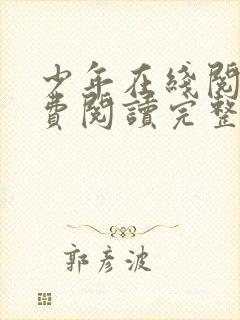 少年在綫閱
費閱讀完整
郭彦波